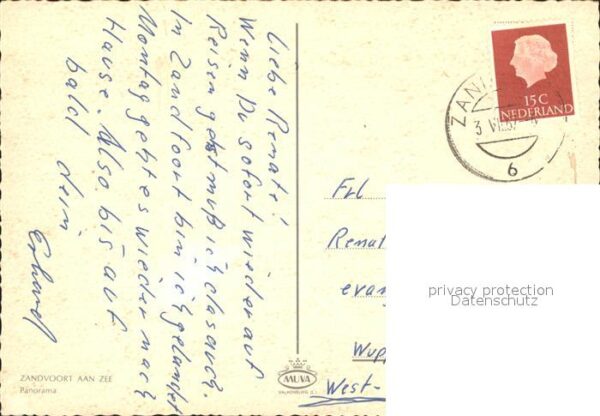 Liebe Renate!
Wenn Du sofort wieder auf
Reisen gehst muß ich das auch.
In Zandfoort bin ich gelandet
Montag geht es wieder nach
Hause. Also bis auf
bald dein
Erhard
ZANDVOORT AAN ZEE
Panorama
MUVA
VALKENBURG (L.)
15C
NEDERLAND
ZAN
3 VII.5
6
Frl
Renat
evan
Wupp
West-
privacy protection
Datenschutz